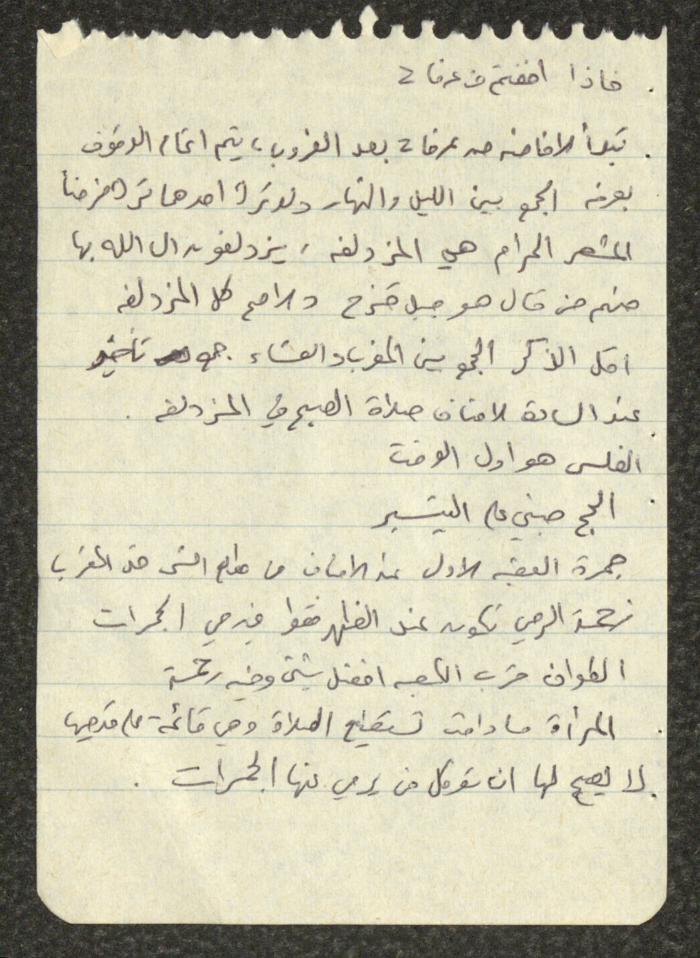 . فاذا افضتم من عرفات
. تبدأ الافاضه من عرفات بعد الغروب، يتم اتمام الوقوف
بعرفه الجمع بين الليل والنهار ولو ترك احدهما ترك فرضاً
المشعر الحرام هي المزدلفه، يزدلفون الى الله بها
منهم من قال هو جبل قزح والاصح كل المزدلفه
اقل الذكر الجمع بين المغرب والعشاء جمع تأخير
عند السادة الاحناف صلاة الصبح في المزدلفه .
. الغلس هو اول الوقت
. الحج مبني على التيسير
جمرة العقبه الاولى عند الاحناف من طلوع الشمس حتى المغرب
زحمة الرمي تكون عند الظهر فقوا في رمي الجمرات
الطواف قرب الكعبه افضل شيء وفيه رحمة
. المرأة ما دامت تستطيع الصلاة وهي قائمة على قدميها
. لا يصح لها ان توكل من يرمي عنها الجمرات .